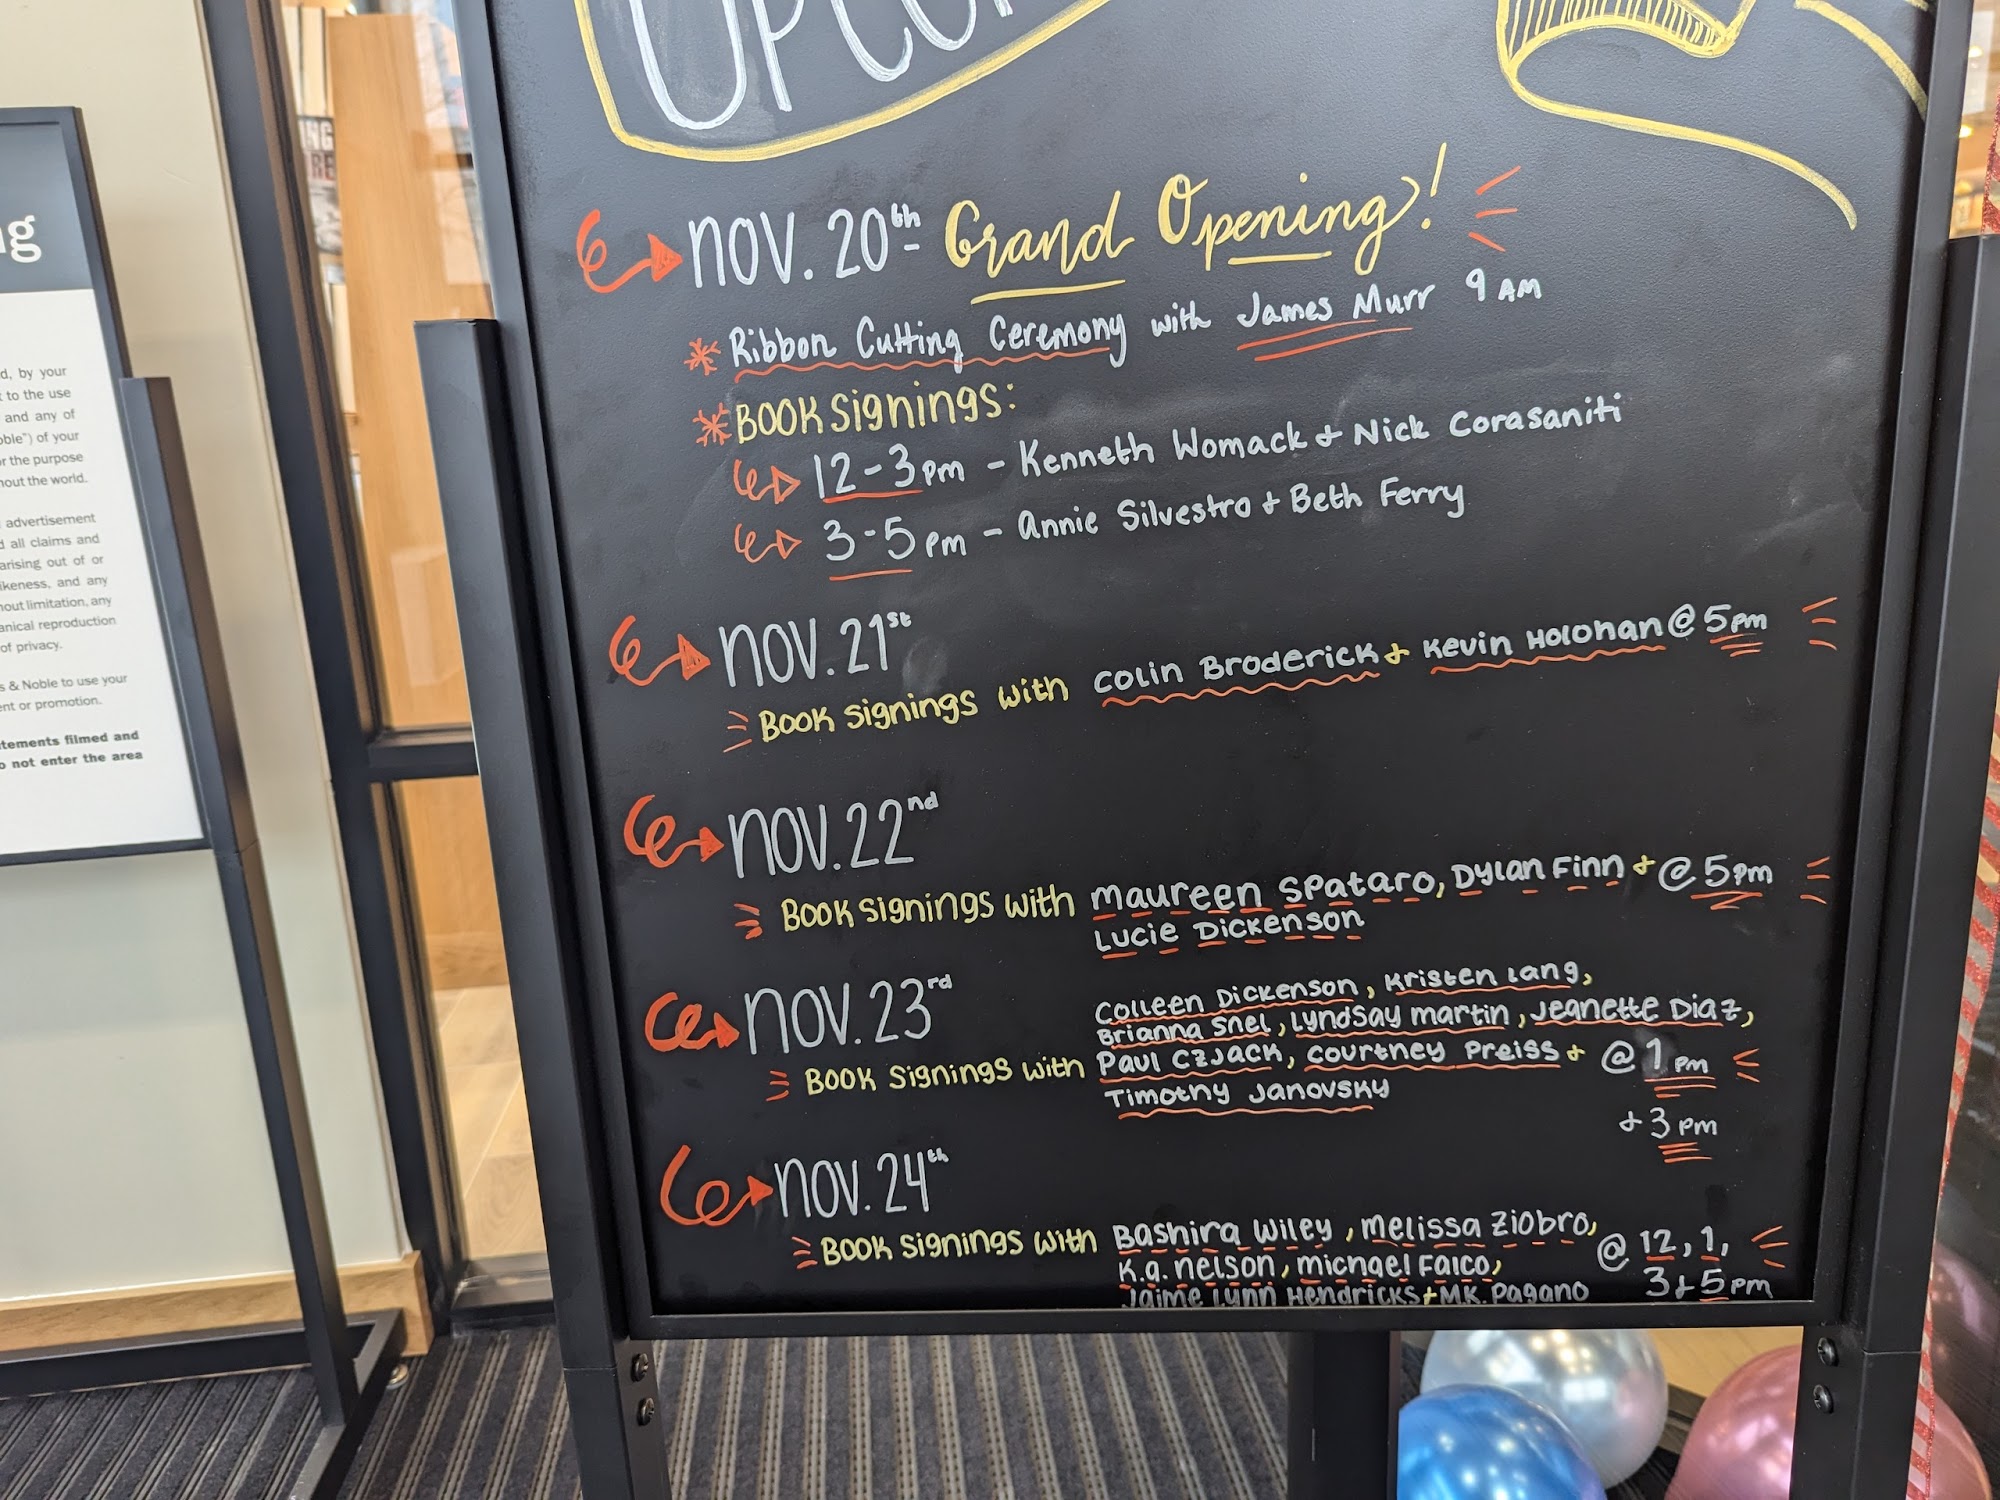 NOV. 20th Grand Opening!
Ribbon Cutting Ceremony with James Murr 9 AM
BOOK Signings:
12-3pm - Kenneth Womack + Nick Corasaniti
3-5pm - Annie Silvestro + Beth Ferry
NOV. 21st
BOOK Signings with Colin Broderick + Kevin Holohan @ 5pm
NOV. 22nd
BOOK Signings with Maureen Spataro, Dylan Finn + @ 5pm
Lucie Dickenson
NOV. 23rd
Colleen Dickenson, Kristen Lang,
Brianna Snel, Lyndsay Martin, Jeanette Diaz,
BOOK Signings with Paul Czjack, Courtney Preiss + @ 1pm
Timothy Janovsky
+ 3pm
NOV. 24th
BOOK Signings with Bashira Wiley, Melissa Ziobro, @ 12, 1,
K.A. Nelson, Michael Falco, 3 + 5pm
Jaime Lynn Hendricks + M.K. Pagano
by your
to the use
and any of
of your
the purpose
the world.
advertisement
all claims and
arising out of or
and any
limitation, any
reproduction
of privacy.
& Noble to use your
or promotion.
filmed and
not enter the area